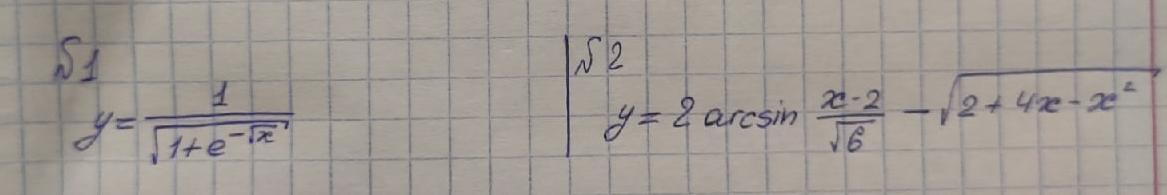 №1
y = 1/√(1+e^(-√x))
№2
y = 2 arcsin (x-2)/√6 - √(2+4x-x²)